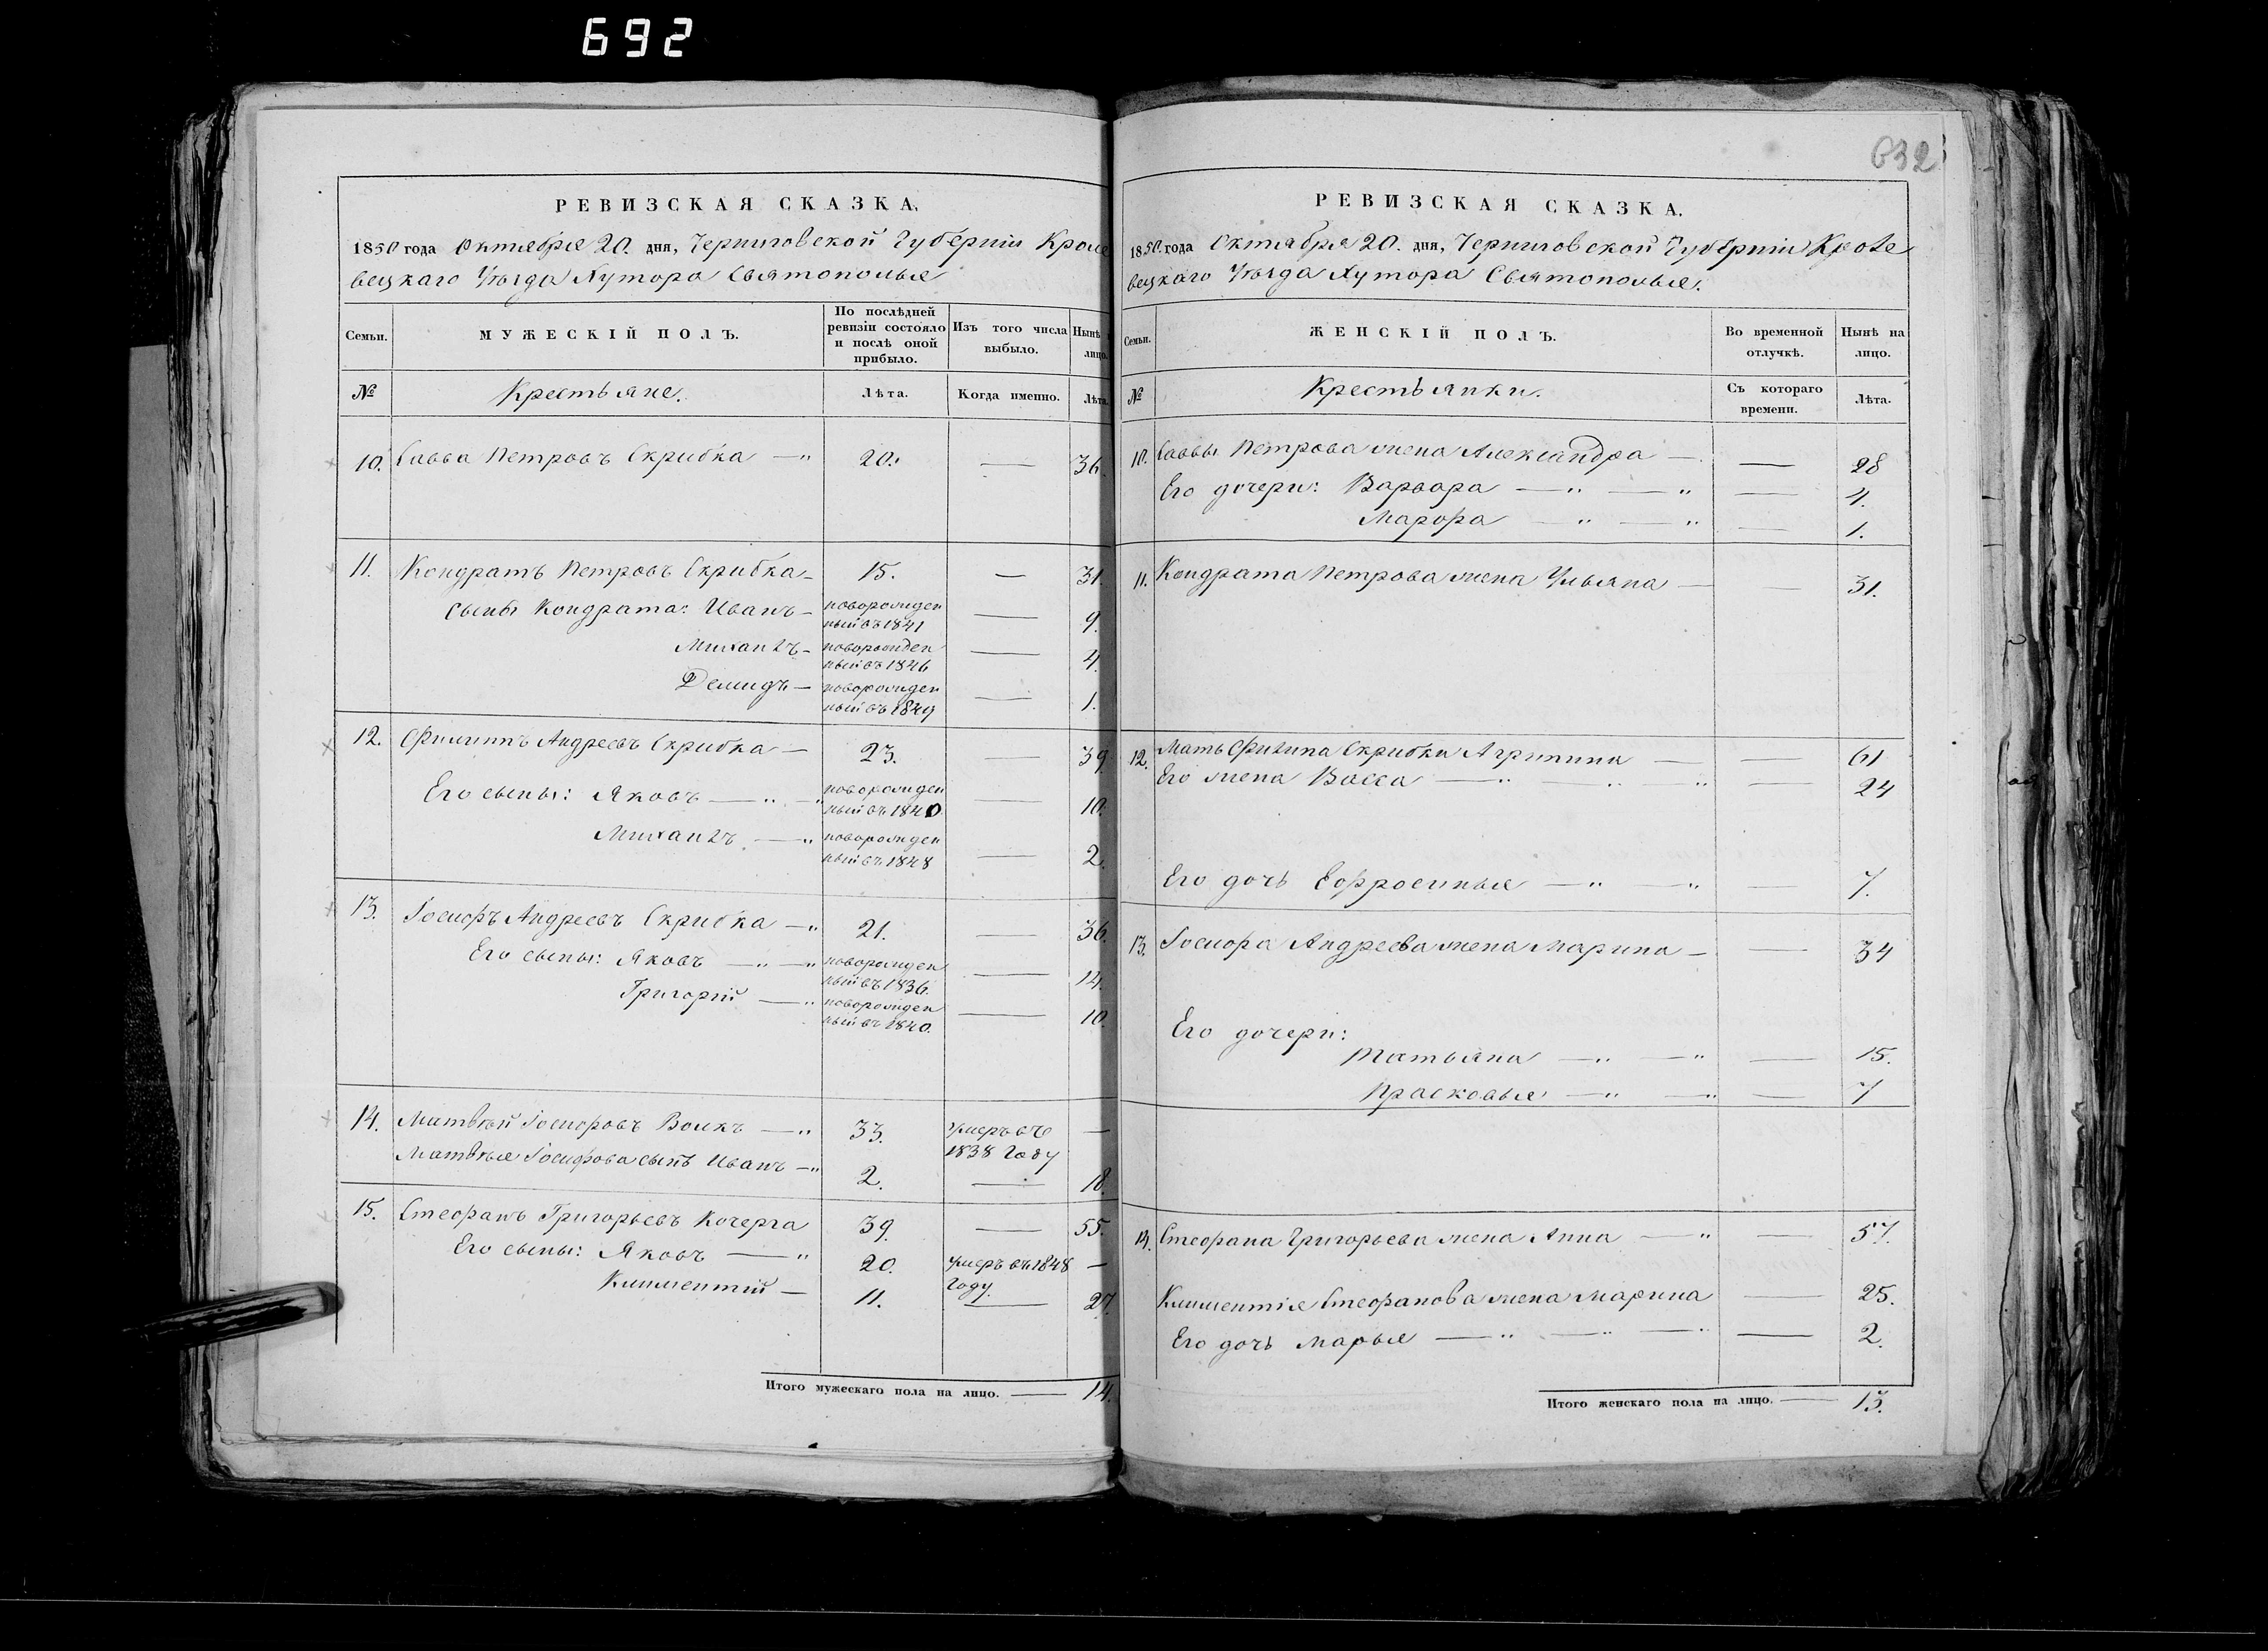 692
632
РЕВИЗСКАЯ СКАЗКА.
1850 года Октября 20. дня, Черниговской Губерніи Кроле
вецкаго Уѣзда Хутора Святополья
Семьи. МУЖЕСКІЙ ПОЛЪ. По послѣдней ревизіи состояло и послѣ оной прибыло. Изъ того числа выбыло. Нынѣ лицо.
№ Крестьяне. Лѣта. Когда именно. Лѣта.
10. Савва Петровъ Скрибка — " 20. — 36.
11. Кондратъ Петровъ Скрибка — 15. — 31.
Сыны Кондрата: Иванъ — новорожден
ный въ 1841 — 9.
Михаилъ — новорожден
ный въ 1846 — 4.
Демидъ — новорожден
ный въ 1849 — 1.
12. Филиппъ Андреевъ Скрибка — 23. — 39.
Его сыны: Яковъ — " — " новорожден
ный въ 1840 — 10.
Михаилъ — " новорожден
ный въ 1848 — 2.
13. Іосифъ Андреевъ Скрибка — " 21. — 36.
Его сыны: Яковъ — " — " новорожден
ный въ 1836. — 14.
Григорій — " новорожден
ный въ 1840. — 10.
14. Матвѣй Іосифовъ Волкъ — " 33. умеръ въ —
1838 Году
Матвѣя Іосифова сынъ Иванъ — " 2. — 18.
15. Стефанъ Григорьевъ Кочерга 39. — 55.
Его сыны: Яковъ — " 20. умеръ въ 1848 —
Году.
Климентій — 11. — 27.
Итого мужескаго пола на лицо. — 14.
РЕВИЗСКАЯ СКАЗКА.
1850. года Октября 20. дня, Черниговской Губерніи Кроле
вецкаго Уѣзда Хутора Святополья.
Семьи. ЖЕНСКІЙ ПОЛЪ. Во временной отлучкѣ. Нынѣ на лицо.
№ Крестьянки. Съ котораго времени. Лѣта.
10. Саввы Петрова жена Александра — — 28
Его дочери: Варвара — " — " — 4.
Марфа — " — " — 1.
11. Кондрата Петрова жена Ульяна — — 31.
12. Мать Филипа Скрибки Агрипина — — 61
Его жена Васса — " — " — " — 24
Его дочь Ефросинья — " — " — 7.
13. Іосифа Андреева жена Марина — — 34
Его дочери:
Татьяна — " — " — 15.
Прасковья — " — " — 7
Стефана Григорьева жена Анна — " — 57.
Климентія Стефанова жена Марина — 25.
Его дочь Марья — " — " — " — 2.
Итого женскаго пола на лицо. — 13.